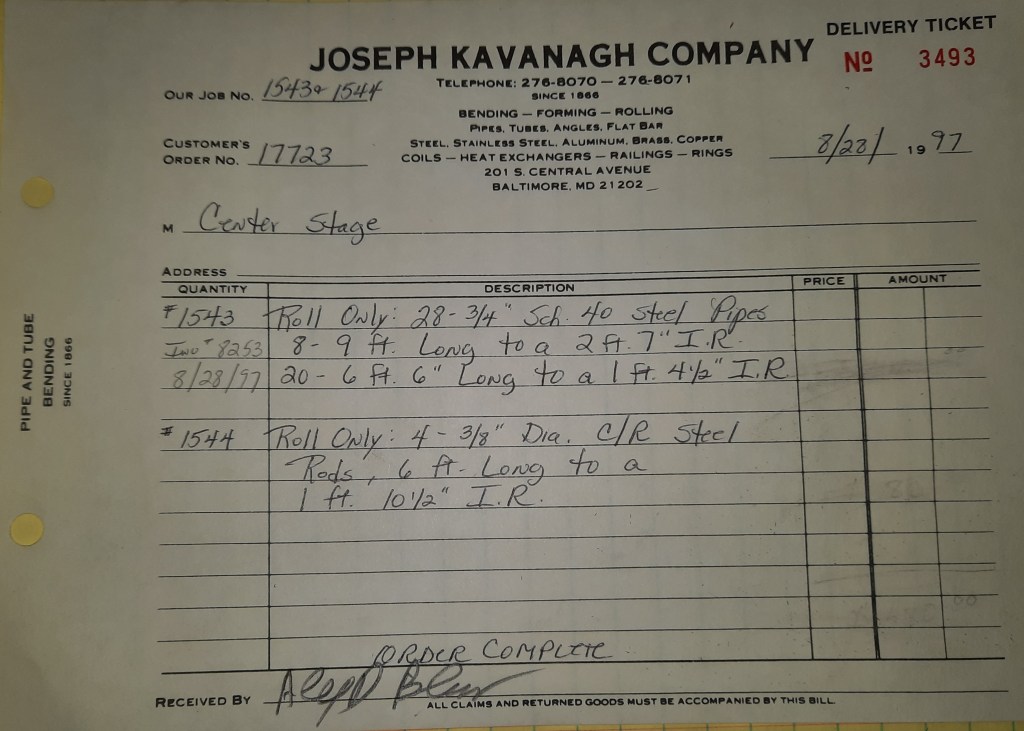 DELIVERY TICKET
JOSEPH KAVANAGH COMPANY
Nº 3493
TELEPHONE: 276-8070 — 276-8071
SINCE 1866
OUR JOB NO. 1543 & 1544
BENDING — FORMING — ROLLING
PIPES, TUBES, ANGLES, FLAT BAR
STEEL, STAINLESS STEEL, ALUMINUM, BRASS, COPPER
COILS — HEAT EXCHANGERS — RAILINGS — RINGS
201 S. CENTRAL AVENUE
BALTIMORE, MD 21202
CUSTOMER'S
ORDER NO. 17723
8/28/ 1997
M Center Stage
ADDRESS
QUANTITY DESCRIPTION PRICE AMOUNT
#1543 Roll Only: 28 - 3/4" Sch. 40 Steel Pipes
Inv # 8253 8 - 9 ft. Long to a 2 ft. 7" I.R.
8/28/97 20 - 6 ft. 6" Long to a 1 ft. 4 1/2" I.R
#1544 Roll Only: 4 - 3/8" Dia. C/R Steel
Rods, 6 ft. Long to a
1 ft. 10 1/2" I.R.
ORDER COMPLETE
RECEIVED BY
ALL CLAIMS AND RETURNED GOODS MUST BE ACCOMPANIED BY THIS BILL
PIPE AND TUBE
BENDING
SINCE 1866